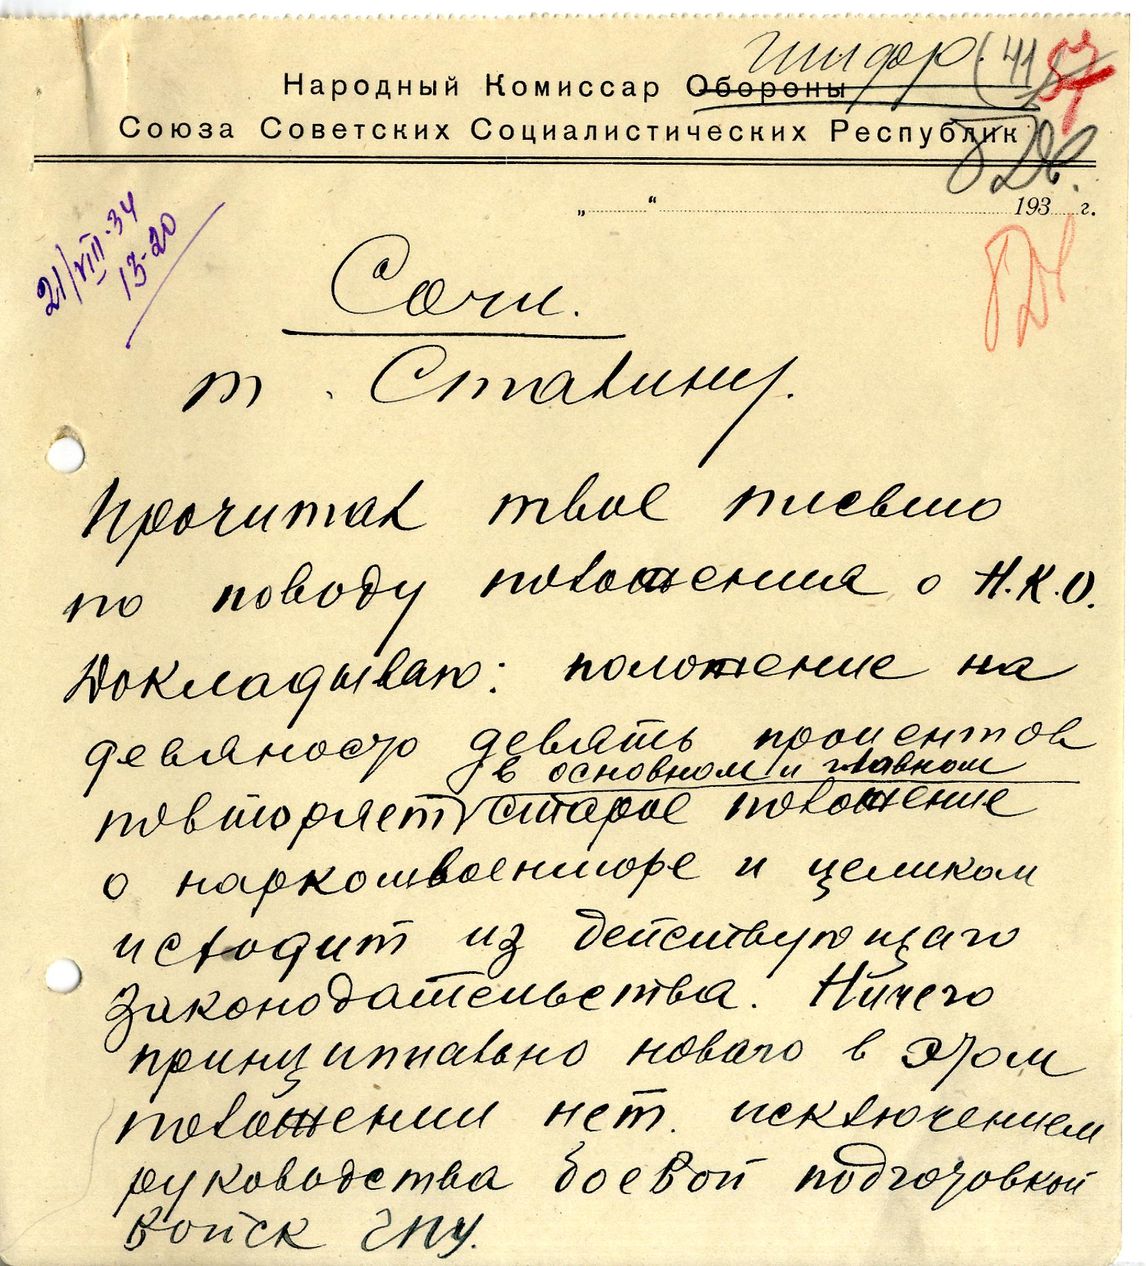 шифор. (41
87
Народный Комиссар Обороны
Союза Советских Социалистических Республик
„ “ 193 г.
21/VIII-34
13-20
Сочи.
т. Сталину.
Прочитал твое письмо
по поводу положения о Н.К.О.
Докладываю: положение на
девяносто девять процентов
в основном и главном
повторяет старое положение
о наркомвоенморе и целиком
исходит из действующаго
законодательства. Ничего
принципиально новаго в этом
положении нет. исключением
руководства боевой подготовкой
войск ГПУ.